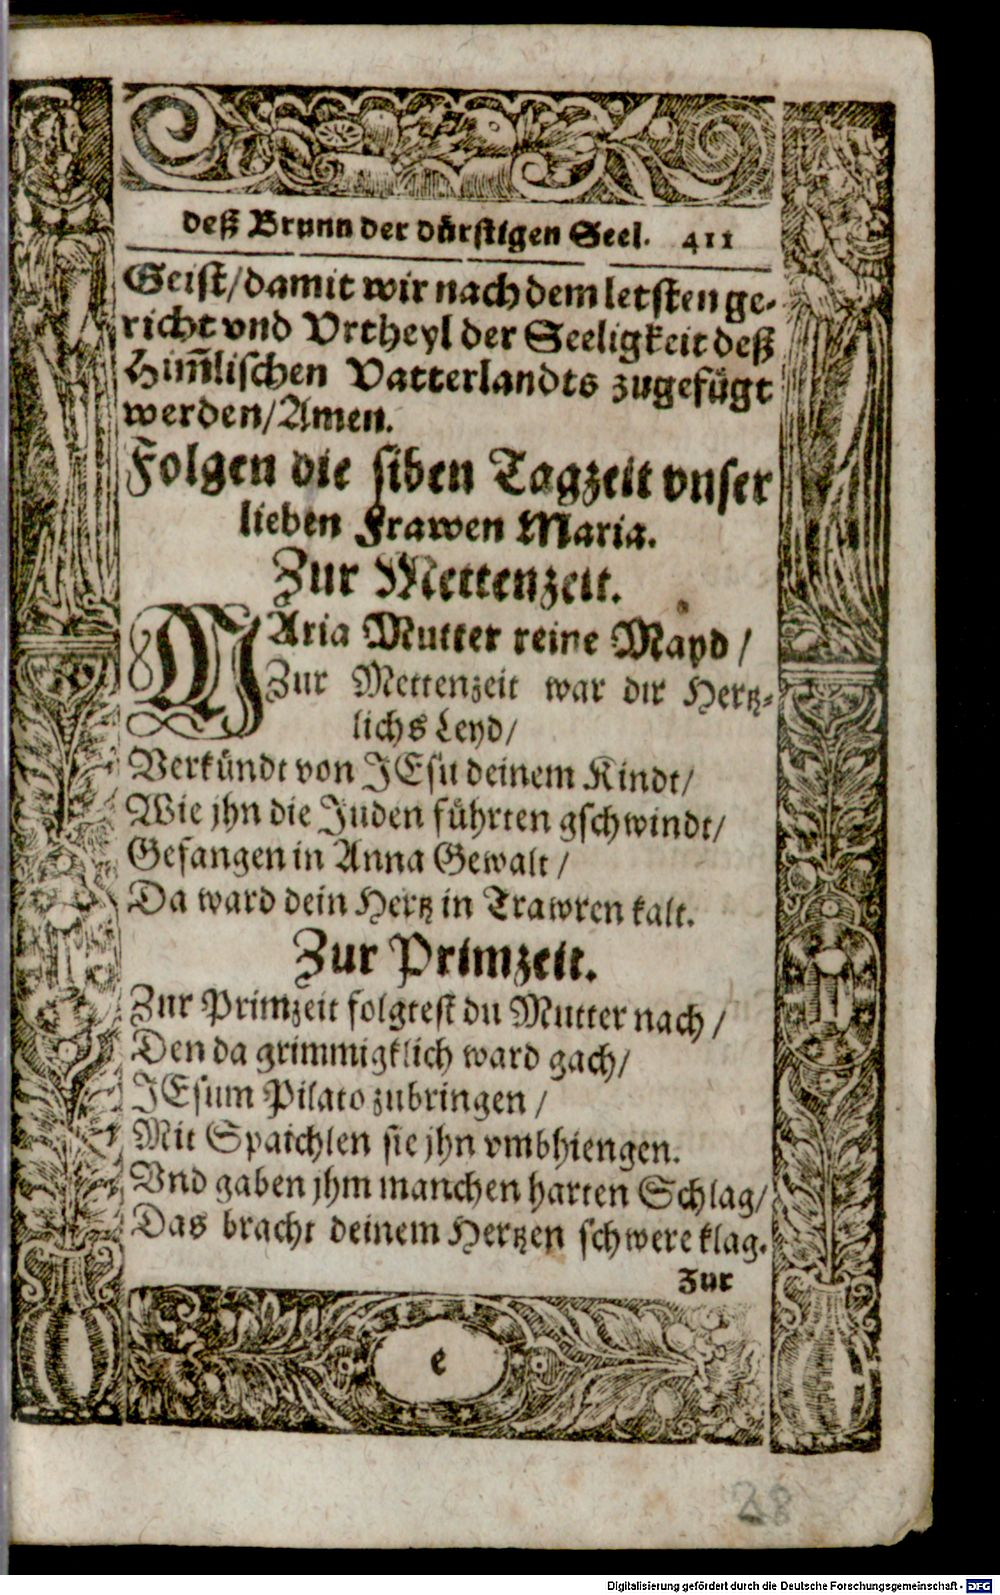 deß Brunn der dürstigen Seel. 411
Geist/damit wir nach dem letsten ge-
richt vnd Vrtheyl der Seeligkeit deß
Him̃lischen Vatterlandts zugefügt
werden/Amen.
Folgen die siben Tagzeit vnser
lieben Frawen Maria.
Zur Mettenzeit.
MAria Mutter reine Mayd/
Zur Mettenzeit war dir Hertz-
lichs Leyd/
Verkündt von JEsu deinem Kindt/
Wie jhn die Juden führten gschwindt/
Gefangen in Anna Gewalt/
Da ward dein Hertz in Trawren kalt.
Zur Primzeit.
Zur Primzeit folgtest du Mutter nach/
Den da grimmigklich ward gach/
JEsum Pilato zubringen/
Mit Spaichlen sie jhn vmbhiengen.
Vnd gaben jhm manchen harten Schlag/
Das bracht deinem Hertzen schwere klag.
Zur
e
28
Digitalisierung gefördert durch die Deutsche Forschungsgemeinschaft - DFG